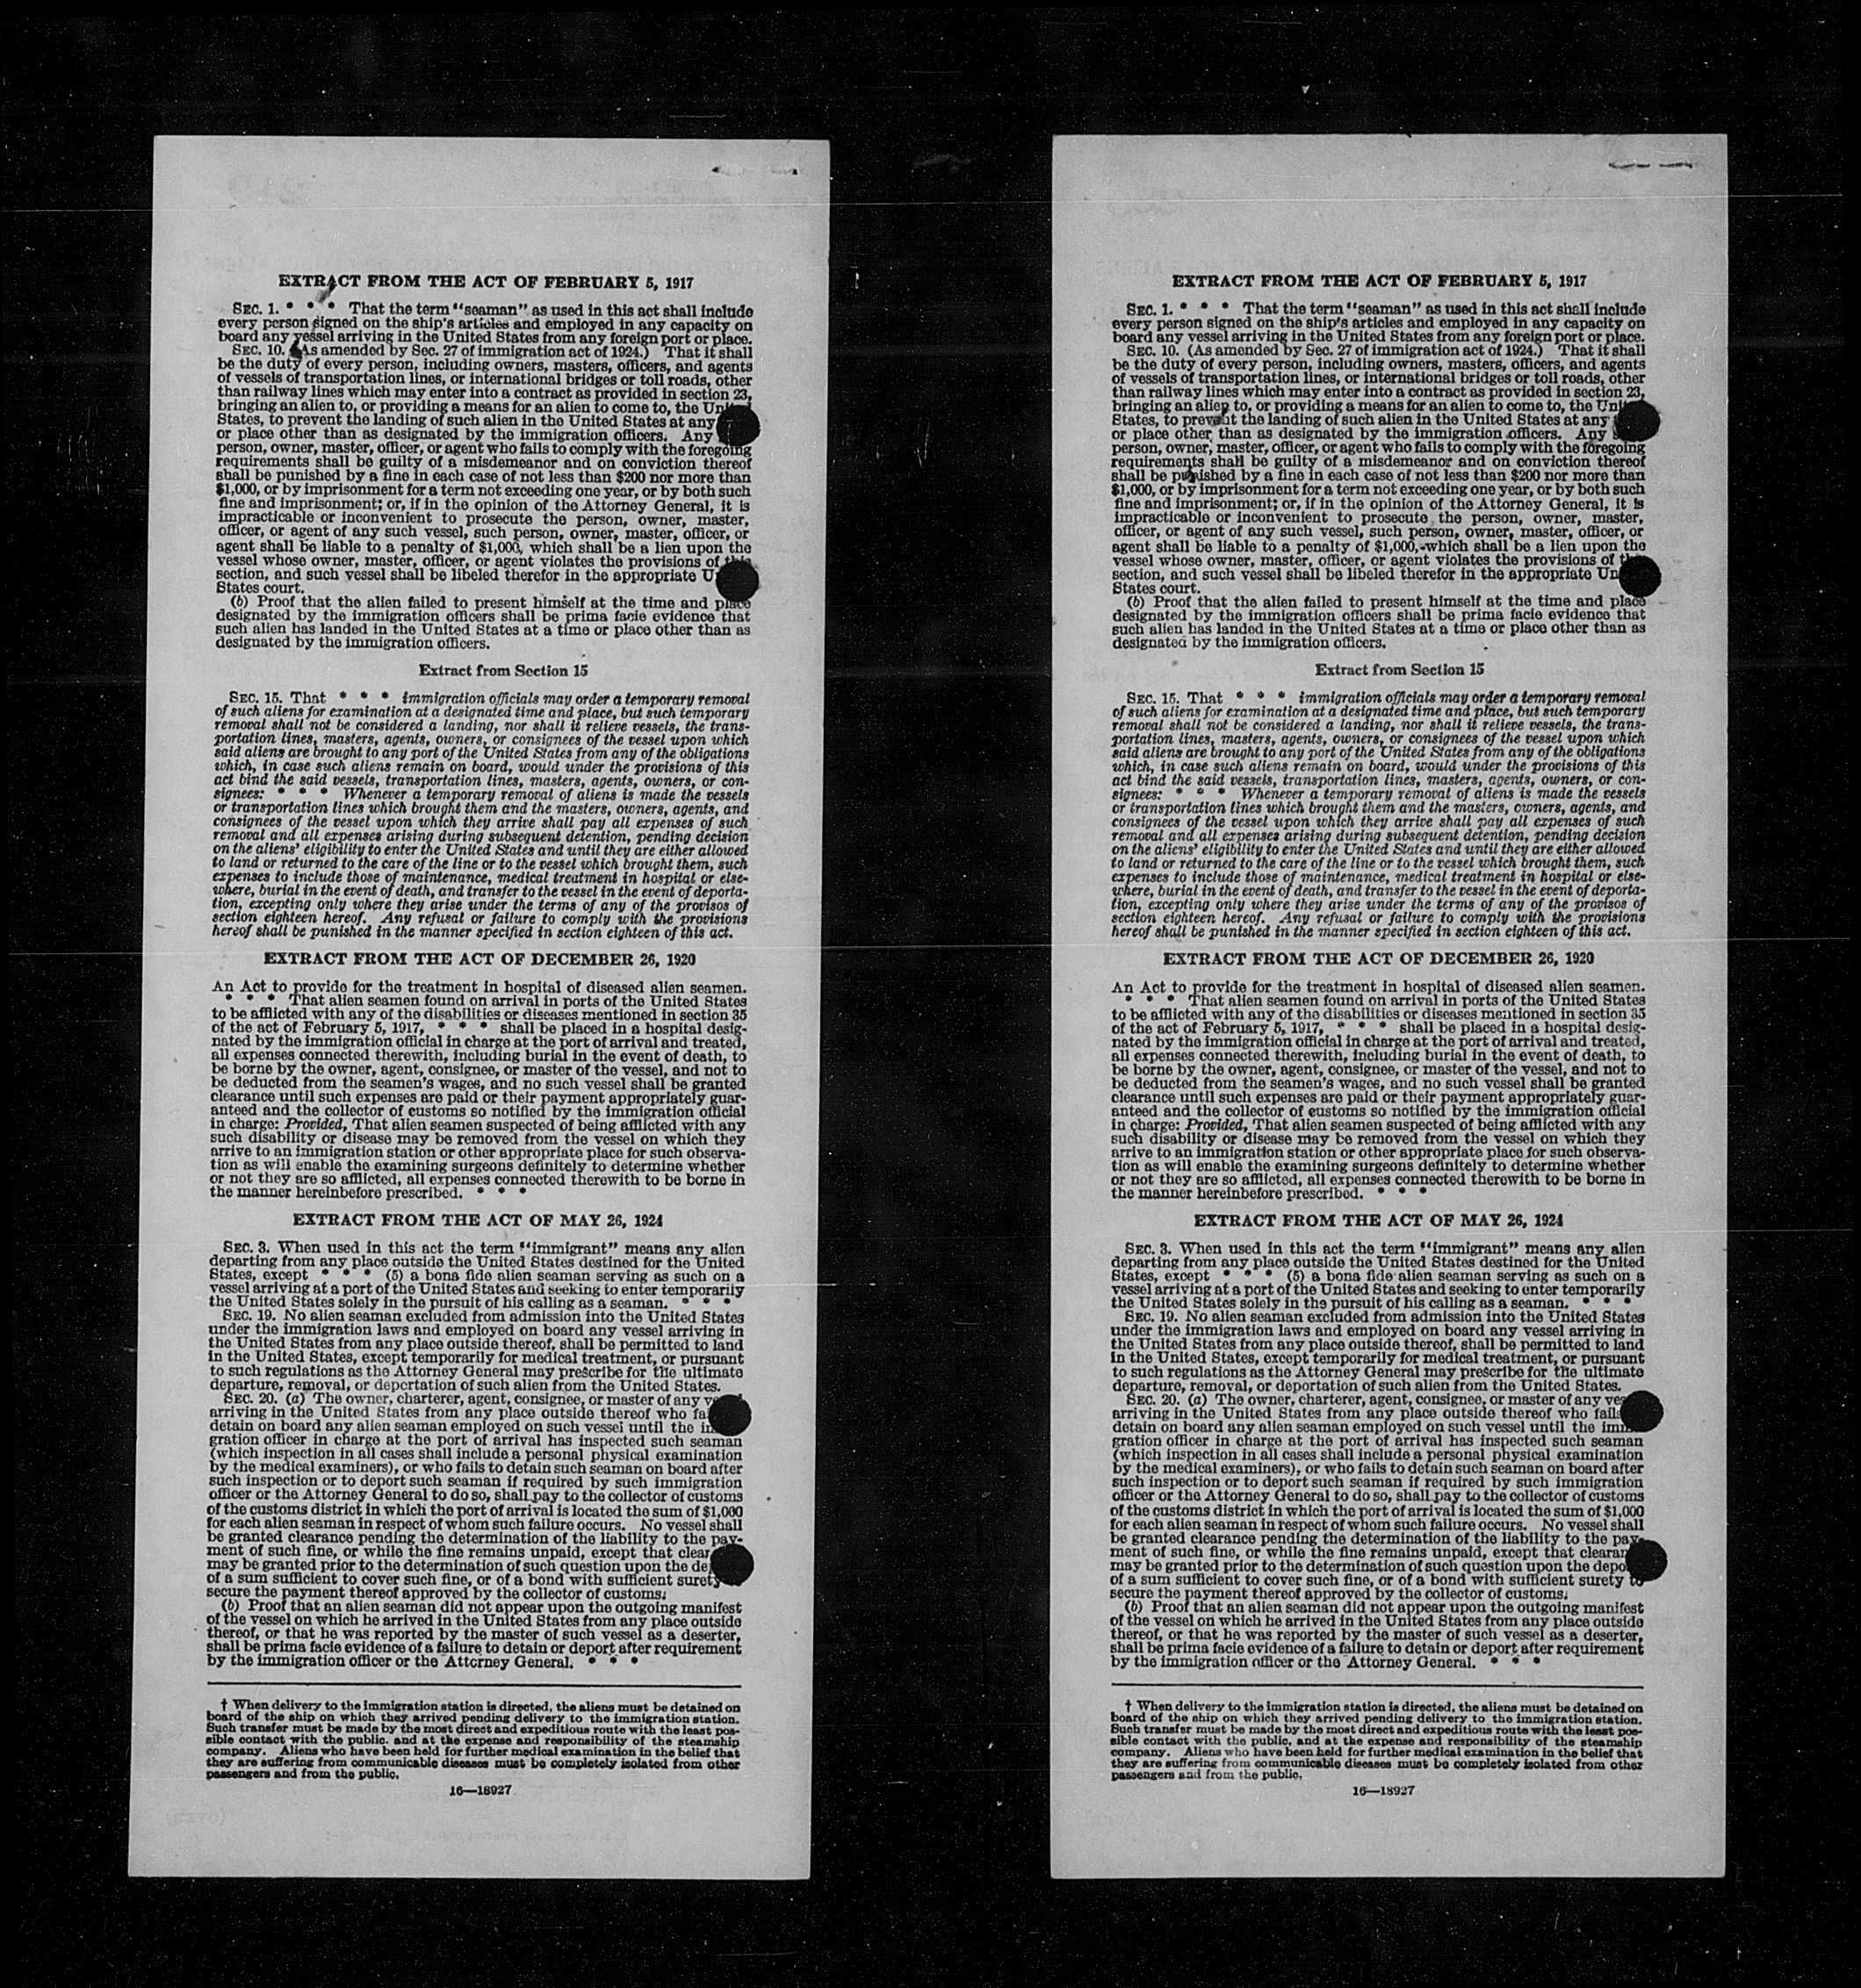 EXTRACT FROM THE ACT OF FEBRUARY 5, 1917
SEC. 1. * * * That the term "seaman" as used in this act shall include
every person signed on the ship's articles and employed in any capacity on
board any vessel arriving in the United States from any foreign port or place.
SEC. 10. (As amended by Sec. 27 of immigration act of 1924.) That it shall
be the duty of every person, including owners, masters, officers, and agents
of vessels of transportation lines, or international bridges or toll roads, other
than railway lines which may enter into a contract as provided in section 23,
bringing an alien to, or providing a means for an alien to come to, the
States, to prevent the landing of such alien in the United States at any
or place other than as designated by the immigration officers. Any
person, owner, master, officer, or agent who fails to comply with the foregoing
requirements shall be guilty of a misdemeanor and on conviction thereof
shall be punished by a fine in each case of not less than $200 nor more than
$1,000, or by imprisonment for a term not exceeding one year, or by both such
fine and imprisonment; or, if in the opinion of the Attorney General, it is
impracticable or inconvenient to prosecute the person, owner, master,
officer, or agent of any such vessel, such person, owner, master, officer, or
agent shall be liable to a penalty of $1,000, which shall be a lien upon the
vessel whose owner, master, officer, or agent violates the provisions of this
section, and such vessel shall be libeled therefor in the appropriate
States court.
(b) Proof that the alien failed to present himself at the time and place
designated by the immigration officers shall be prima facie evidence that
such alien has landed in the United States at a time or place other than as
designated by the immigration officers.
Extract from Section 15
SEC. 15. That * * * immigration officials may order a temporary removal
of such aliens for examination at a designated time and place, but such temporary
removal shall not be considered a landing, nor shall it relieve vessels, the trans-
portation lines, masters, agents, owners, or consignees of the vessel upon which
said aliens are brought to any port of the United States from any of the obligations
which, in case such aliens remain on board, would under the provisions of this
act bind the said vessels, transportation lines, masters, agents, owners, or con-
signees: * * * Whenever a temporary removal of aliens is made the vessels
or transportation lines which brought them and the masters, owners, agents, and
consignees of the vessel upon which they arrive shall pay all expenses of such
removal and all expenses arising during subsequent detention, pending decision
on the aliens' eligibility to enter the United States and until they are either allowed
to land or returned to the care of the line or to the vessel which brought them, such
expenses to include those of maintenance, medical treatment in hospital or else-
where, burial in the event of death, and transfer to the vessel in the event of deporta-
tion, excepting only where they arise under the terms of any of the provisos of
section eighteen hereof. Any refusal or failure to comply with the provisions
hereof shall be punished in the manner specified in section eighteen of this act.
EXTRACT FROM THE ACT OF DECEMBER 26, 1920
An Act to provide for the treatment in hospital of diseased alien seamen.
* * * That alien seamen found on arrival in ports of the United States
to be afflicted with any of the disabilities or diseases mentioned in section 35
of the act of February 5, 1917, * * * shall be placed in a hospital desig-
nated by the immigration official in charge at the port of arrival and treated,
all expenses connected therewith, including burial in the event of death, to
be borne by the owner, agent, consignee, or master of the vessel, and not to
be deducted from the seamen's wages, and no such vessel shall be granted
clearance until such expenses are paid or their payment appropriately guar-
anteed and the collector of customs so notified by the immigration official
in charge: Provided, That alien seamen suspected of being afflicted with any
such disability or disease may be removed from the vessel on which they
arrive to an immigration station or other appropriate place for such observa-
tion as will enable the examining surgeons definitely to determine whether
or not they are so afflicted, all expenses connected therewith to be borne in
the manner hereinbefore prescribed. * * *
EXTRACT FROM THE ACT OF MAY 26, 1924
SEC. 3. When used in this act the term "immigrant" means any alien
departing from any place outside the United States destined for the United
States, except * * * (5) a bona fide alien seaman serving as such on a
vessel arriving at a port of the United States and seeking to enter temporarily
the United States solely in the pursuit of his calling as a seaman. * * *
SEC. 19. No alien seaman excluded from admission into the United States
under the immigration laws and employed on board any vessel arriving in
the United States from any place outside thereof, shall be permitted to land
in the United States, except temporarily for medical treatment, or pursuant
to such regulations as the Attorney General may prescribe for the ultimate
departure, removal, or deportation of such alien from the United States.
SEC. 20. (a) The owner, charterer, agent, consignee, or master of any
arriving in the United States from any place outside thereof who
detain on board any alien seaman employed on such vessel until the
gration officer in charge at the port of arrival has inspected such seaman
(which inspection in all cases shall include a personal physical examination
by the medical examiners), or who fails to detain such seaman on board after
such inspection or to deport such seaman if required by such immigration
officer or the Attorney General to do so, shall pay to the collector of customs
of the customs district in which the port of arrival is located the sum of $1,000
for each alien seaman in respect of whom such failure occurs. No vessel shall
be granted clearance pending the determination of the liability to the pay-
ment of such fine, or while the fine remains unpaid, except that
may be granted prior to the determination of such question upon the
of a sum sufficient to cover such fine, or of a bond with sufficient surety
secure the payment thereof approved by the collector of customs.
(b) Proof that an alien seaman did not appear upon the outgoing manifest
of the vessel on which he arrived in the United States from any place outside
thereof, or that he was reported by the master of such vessel as a deserter,
shall be prima facie evidence of a failure to detain or deport after requirement
by the immigration officer or the Attorney General. * * *
† When delivery to the immigration station is directed, the aliens must be detained on
board of the ship on which they arrived pending delivery to the immigration station.
Such transfer must be made by the most direct and expeditious route with the least pos-
sible contact with the public, and at the expense and responsibility of the steamship
company. Aliens who have been held for further medical examination in the belief that
they are suffering from communicable diseases must be completely isolated from other
passengers and from the public.
16—18927
EXTRACT FROM THE ACT OF FEBRUARY 5, 1917
SEC. 1. * * * That the term "seaman" as used in this act shall include
every person signed on the ship's articles and employed in any capacity on
board any vessel arriving in the United States from any foreign port or place.
SEC. 10. (As amended by Sec. 27 of immigration act of 1924.) That it shall
be the duty of every person, including owners, masters, officers, and agents
of vessels of transportation lines, or international bridges or toll roads, other
than railway lines which may enter into a contract as provided in section 23,
bringing an alien to, or providing a means for an alien to come to, the
States, to prevent the landing of such alien in the United States at any
or place other than as designated by the immigration officers. Any
person, owner, master, officer, or agent who fails to comply with the foregoing
requirements shall be guilty of a misdemeanor and on conviction thereof
shall be punished by a fine in each case of not less than $200 nor more than
$1,000, or by imprisonment for a term not exceeding one year, or by both such
fine and imprisonment; or, if in the opinion of the Attorney General, it is
impracticable or inconvenient to prosecute the person, owner, master,
officer, or agent of any such vessel, such person, owner, master, officer, or
agent shall be liable to a penalty of $1,000, which shall be a lien upon the
vessel whose owner, master, officer, or agent violates the provisions of
section, and such vessel shall be libeled therefor in the appropriate
States court.
(b) Proof that the alien failed to present himself at the time and place
designated by the immigration officers shall be prima facie evidence that
such alien has landed in the United States at a time or place other than as
designated by the immigration officers.
Extract from Section 15
SEC. 15. That * * * immigration officials may order a temporary removal
of such aliens for examination at a designated time and place, but such temporary
removal shall not be considered a landing, nor shall it relieve vessels, the trans-
portation lines, masters, agents, owners, or consignees of the vessel upon which
said aliens are brought to any port of the United States from any of the obligations
which, in case such aliens remain on board, would under the provisions of this
act bind the said vessels, transportation lines, masters, agents, owners, or con-
signees: * * * Whenever a temporary removal of aliens is made the vessels
or transportation lines which brought them and the masters, owners, agents, and
consignees of the vessel upon which they arrive shall pay all expenses of such
removal and all expenses arising during subsequent detention, pending decision
on the aliens' eligibility to enter the United States and until they are either allowed
to land or returned to the care of the line or to the vessel which brought them, such
expenses to include those of maintenance, medical treatment in hospital or else-
where, burial in the event of death, and transfer to the vessel in the event of deporta-
tion, excepting only where they arise under the terms of any of the provisos of
section eighteen hereof. Any refusal or failure to comply with the provisions
hereof shall be punished in the manner specified in section eighteen of this act.
EXTRACT FROM THE ACT OF DECEMBER 26, 1920
An Act to provide for the treatment in hospital of diseased alien seamen.
* * * That alien seamen found on arrival in ports of the United States
to be afflicted with any of the disabilities or diseases mentioned in section 35
of the act of February 5, 1917, * * * shall be placed in a hospital desig-
nated by the immigration official in charge at the port of arrival and treated,
all expenses connected therewith, including burial in the event of death, to
be borne by the owner, agent, consignee, or master of the vessel, and not to
be deducted from the seamen's wages, and no such vessel shall be granted
clearance until such expenses are paid or their payment appropriately guar-
anteed and the collector of customs so notified by the immigration official
in charge: Provided, That alien seamen suspected of being afflicted with any
such disability or disease may be removed from the vessel on which they
arrive to an immigration station or other appropriate place for such observa-
tion as will enable the examining surgeons definitely to determine whether
or not they are so afflicted, all expenses connected therewith to be borne in
the manner hereinbefore prescribed. * * *
EXTRACT FROM THE ACT OF MAY 26, 1924
SEC. 3. When used in this act the term "immigrant" means any alien
departing from any place outside the United States destined for the United
States, except * * * (5) a bona fide alien seaman serving as such on a
vessel arriving at a port of the United States and seeking to enter temporarily
the United States solely in the pursuit of his calling as a seaman. * * *
SEC. 19. No alien seaman excluded from admission into the United States
under the immigration laws and employed on board any vessel arriving in
the United States from any place outside thereof, shall be permitted to land
in the United States, except temporarily for medical treatment, or pursuant
to such regulations as the Attorney General may prescribe for the ultimate
departure, removal, or deportation of such alien from the United States.
SEC. 20. (a) The owner, charterer, agent, consignee, or master of any
arriving in the United States from any place outside thereof who fails
detain on board any alien seaman employed on such vessel until the
gration officer in charge at the port of arrival has inspected such seaman
(which inspection in all cases shall include a personal physical examination
by the medical examiners), or who fails to detain such seaman on board after
such inspection or to deport such seaman if required by such immigration
officer or the Attorney General to do so, shall pay to the collector of customs
of the customs district in which the port of arrival is located the sum of $1,000
for each alien seaman in respect of whom such failure occurs. No vessel shall
be granted clearance pending the determination of the liability to the pay-
ment of such fine, or while the fine remains unpaid, except that
may be granted prior to the determination of such question upon the
of a sum sufficient to cover such fine, or of a bond with sufficient surety to
secure the payment thereof approved by the collector of customs.
(b) Proof that an alien seaman did not appear upon the outgoing manifest
of the vessel on which he arrived in the United States from any place outside
thereof, or that he was reported by the master of such vessel as a deserter,
shall be prima facie evidence of a failure to detain or deport after requirement
by the immigration officer or the Attorney General. * * *
† When delivery to the immigration station is directed, the aliens must be detained on
board of the ship on which they arrived pending delivery to the immigration station.
Such transfer must be made by the most direct and expeditious route with the least pos-
sible contact with the public, and at the expense and responsibility of the steamship
company. Aliens who have been held for further medical examination in the belief that
they are suffering from communicable diseases must be completely isolated from other
passengers and from the public.
16—18927